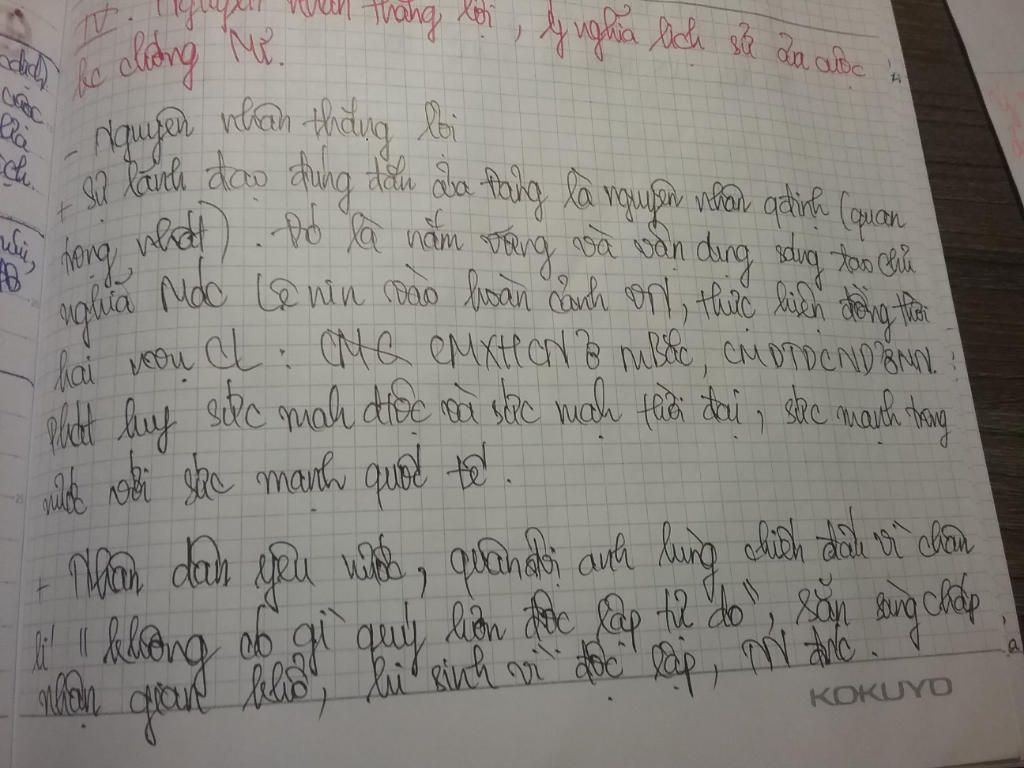 IV. Nguyên nhân thắng lợi, ý nghĩa lịch sử của cuộc
kc chống Mĩ.
- Nguyên nhân thắng lợi
+ Sự lãnh đạo đúng đắn của Đảng là nguyên nhân qđịnh (quan
trọng nhất). Đó là nắm vững và vận dụng sáng tạo chủ
nghĩa Mác Lê nin vào hoàn cảnh VN, thực hiện đồng thời
hai vcụ CL: CMXHCN ở MBắc, CMDTDCND ở MN.
phát huy sức mạnh dtộc và sức mạnh thời đại, sức mạnh trong
nước với sức mạnh quốc tế.
+ Nhân dân yêu nước, quân đội anh hùng chiến đấu vì chân
lí "không có gì quý hơn độc lập tự do", sẵn sàng chấp
nhận gian khổ, hi sinh vì độc lập, TN đnc.
KOKUYO